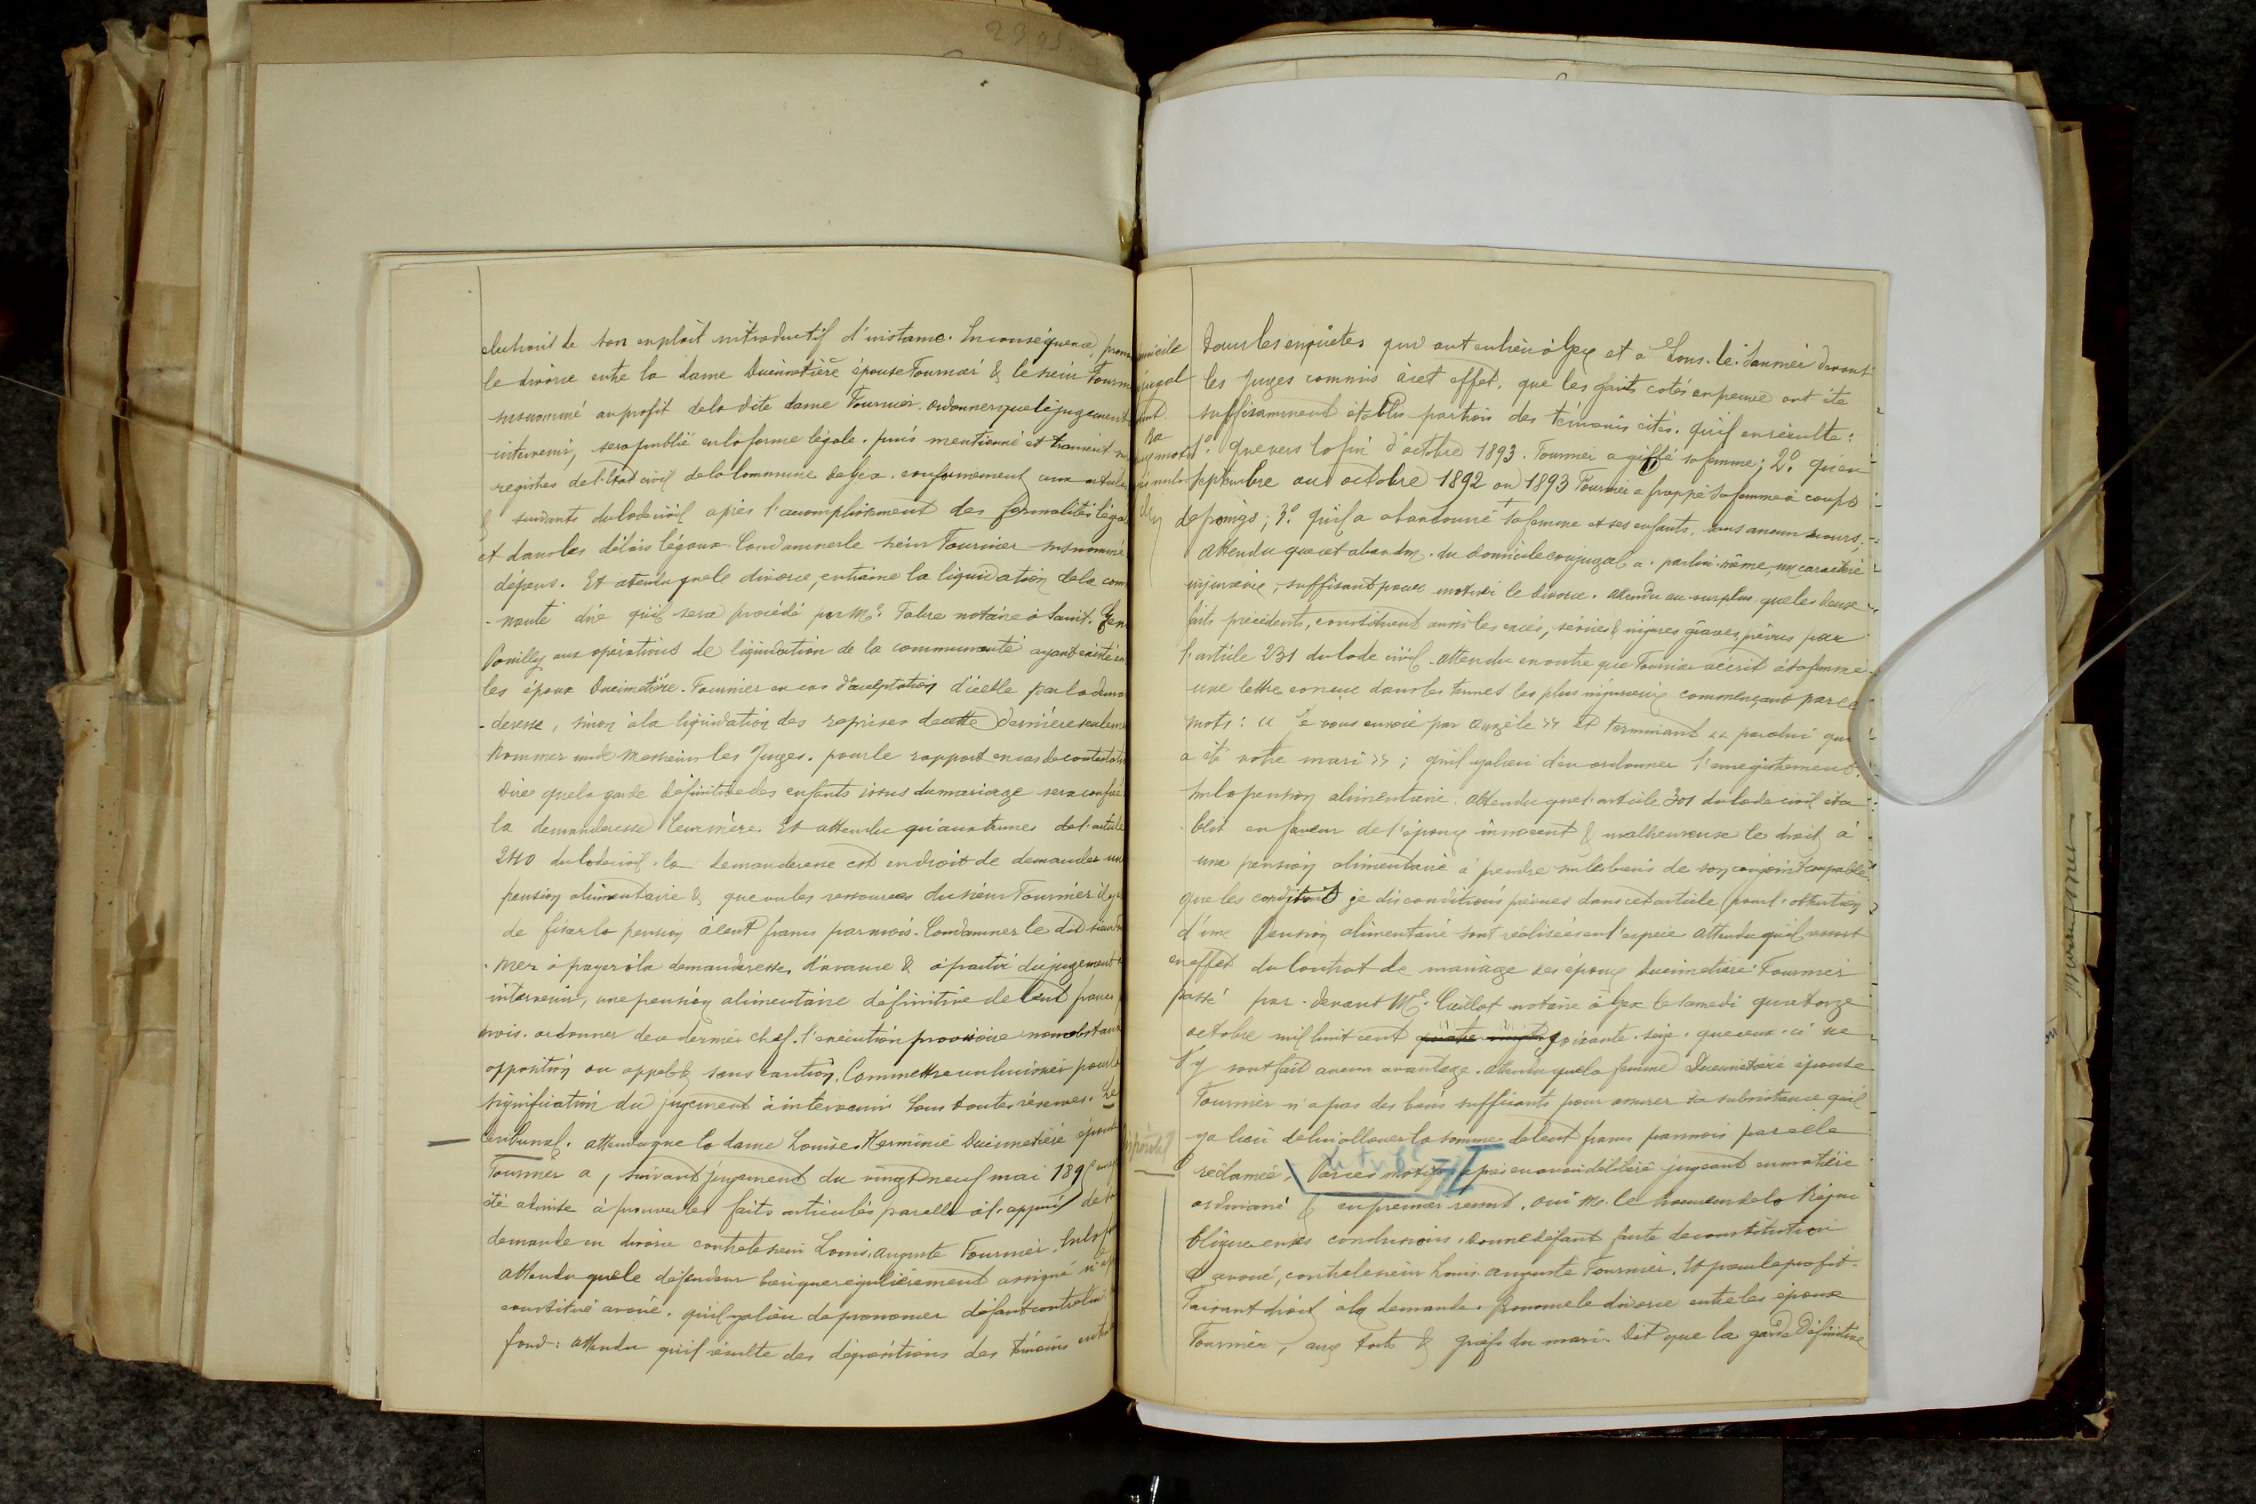 2395
clusions de son exploit introductif d'instance. En conséquence, prono
le divorce entre la dame Duimetière épouse Fournier & le sieur Fourn
susnommé au profit de la dite dame Fournier. ordonner que le jugement
intervenir, sera publié en la forme légale. puis mentionné et transcrit su
registres de l'Etat civil de la Commune de Gex. conformément aux article
& suivants du Code civil après l'accomplissement des formalités léga
et dans les délais légaux. Condamner le sieur Fournier susnommé
dépens. Et attendu que le divorce, entraine la liquidation de la com
-nauté dire qu'il sera procédé par Me. Fabre notaire à Saint. Gen
Pouilly aux opérations de liquidation de la communauté ayant existé en
les époux Duimetière. Fournier en cas d'acceptation d'icelle par la deman
-deresse, sinon à la liquidation des reprises de cette dernière seuleme
Nommer un de Messieurs les Juges. pour le rapport en cas de contestatio
Dire que la garde définitive des enfants issus du mariage sera confiée
la demanderesse leur mère. Et attendu qu'aux termes de l'article
240 du Code civil. la demanderesse est en droit de demander une
pension alimentaire & que vu les ressources du sieur Fournier il y a
de fixer la pension à cent francs par mois. Condamner le dit sieur Fo
-nier à payer à la demanderesse, d'avance & à partir du jugement à
intervenir, une pension alimentaire définitive de cent francs p
mois. ordonner de ce dernier chef. l'exécution provisoire nonobstant
opposition ou appel & sans caution. Commettre un huissier pour la
signification du jugement à intervenir Sous toutes réserves. Le
tribunal. attendu que la dame Louise. Herminie Duimetière épouse
Fournier a, suivant jugement du vingt neuf mai 189
été admise à prouver les faits articulés par elle à l'appui de sa
demande en divorce contre le sieur Louis. auguste Fournier.
attendu que le défendeur bien que régulièrement assigné n'a p
constitué avoué. qu'il y a lieu de prononcer défaut contre lui
fond: attendu qu'il résulte des dépositions des témoins entendus
dans les enquêtes qui ont eu lieu à Gex et à Lons. le. Saunier devant
les Juges commis à cet effet. que les faits cotés en preuve ont été
suffisamment établis par trois des témoins cités. qu'il en résulte:
1°. Que vers la fin d'octobre 1893. Fournier a giffé sa femme; 2°. qu'en
septembre ou octobre 1892 ou 1893 Fournier a frappé sa femme à coups
de poings; 3°. qu'il a abandonné sa femme et ses enfants. sans aucun secours;
Attendu que cet abandon. du domicile conjugal a. par lui-même, un caractère
injurieux, suffisant pour motiver le divorce. attendu au surplus que les deux
faits précédents, constituent aussi les excès, sévices & injures graves, prévus par
l'article 231 du Code civil. attendu en outre que Fournier a écrit à sa femme
une lettre conçue dans les termes les plus injurieux commençant par ces
mots: « Je vous envoie par angèle » Et terminant « par celui qui
a été votre mari »; qu'il y a lieu d'en ordonner l'enregistrement.
Sur la pension alimentaire. attendu que l'article 301 du Code civil éta
blit en faveur de l'époux innocent & malheureux le droit à
une pension alimentaire à prendre sur les biens de son conjoint coupable.
que les conditions je dis conditions prévues dans cet article pour l'obtention
d'une pension alimentaire sont réalisées en l'espèce attendu qu'il ressort
en effet du Contrat de mariage des époux Duimetière. Fournier
passé par-devant Me. Caillat notaire à Gex le samedi quatorze
octobre mil huit cent quatre vingt soixante. seize. que ceux-ci ne
s'y sont fait aucun avantage. attendu que la femme Duimetière épouse
Fournier n'a pas des biens suffisants pour assurer sa subsistance qu'il
y a lieu de lui allouer la somme de cent francs par mois par elle
réclamée. Par ces motifs après en avoir délibéré jugeant en matière
ordinaire & en premier ressort. ouï M. le Procureur de la Répu
blique en ses conclusions. donne défaut faute de constitution
d'avoué, contre le sieur Louis. auguste Fournier. Et pour le profit.
Faisant droit à la demande. Prononce le divorce entre les époux
Fournier, aux torts & griefs du mari. Dit que la garde définitive